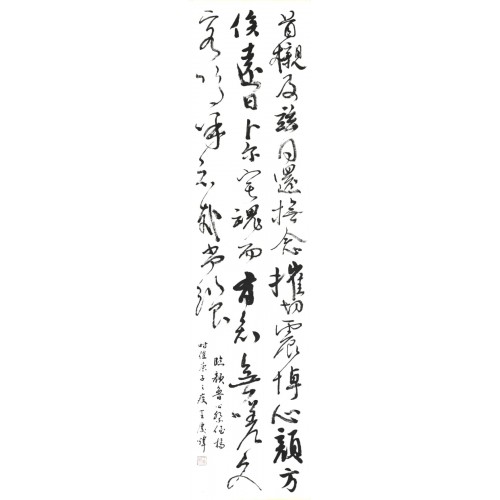 首櫬及兹同還撫念摧切震悼心顏方
俟遠日卜尔宅魂而有知無嗟久
客嗚呼哀哉尚饗
臨顏魯公祭侄稿
时值庚子之夏王